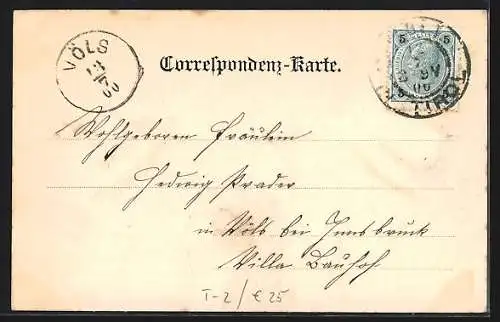 VÖLS
13/7
00
Correspondenz-Karte.
5 5
TIROL
00
Wohlgeboren Fräulein
Hedwig Prader
in Völs bei Innsbruck
Villa Bauhof
T-2/€25